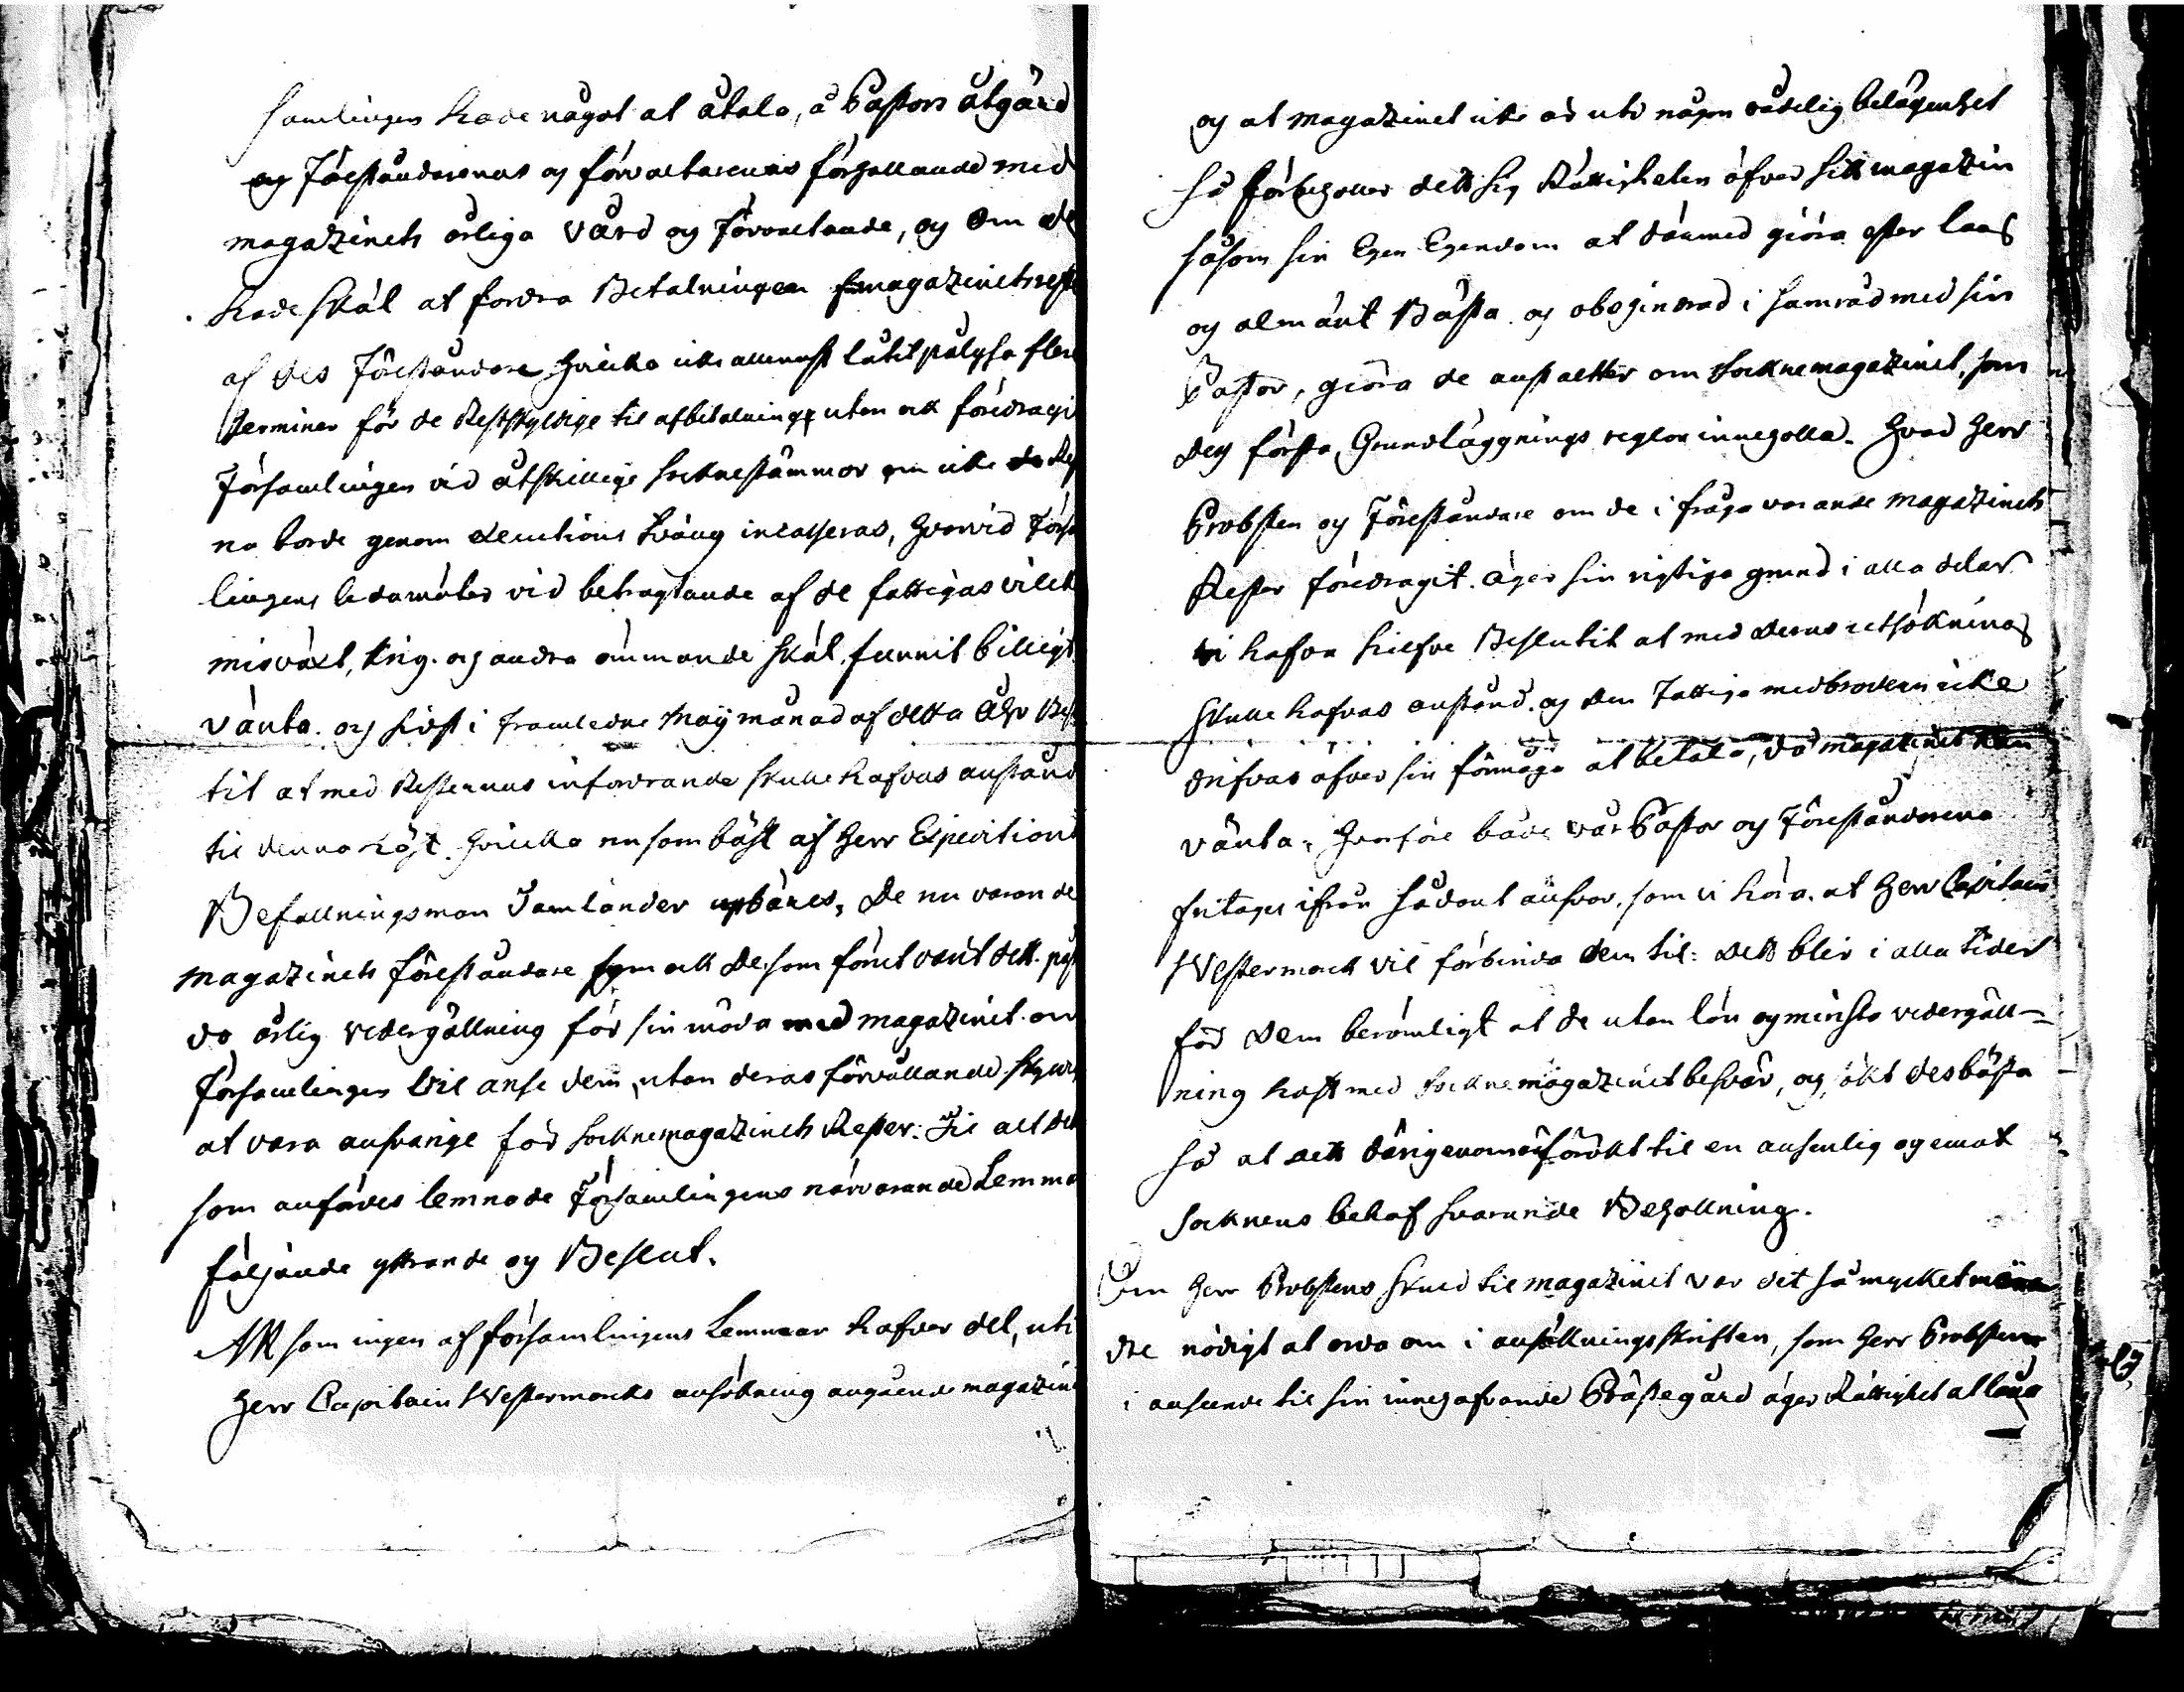 samlingen hade något at åtala, å Pastors åtgärd
og Föreståndarenas og förvaltarenas förhållande med
magazinets årliga vård og förvaltande, og om de
hade skäl at fordra Betalningen magazinets
af des Föreståndare hvilka icke allenast låtit pålysa flere
terminer för de Restskyldige til afbetalning utan ock föredragit
Församlingen vid åtskillige Soknestämmor om icke
na borde genom executions tvång incasseras, hvarvid Församb
lingens ledamöter vid betragtande af de fattigas vilckor
misväxt, krig og andra ömmande skäl, funnit billigt
vänta. og sidst i framledne May månad af detta åhr Beslu
tit at med Resternas infordrande skulle hafvas anstånd
til denna höst hvilka nu som bäst af Herr Expeditions
Befallningsman Jamlander upbäres, De nu varande
magazinets föreståndare som ock De, som förut varit det
årlig vedergällning för sin möda med magazinet
Församlingen vil anse dem, utan deras förvållande
at vara ansvarige för Socknemagazinets Rester: Til alt det
som anfördes lemnade Församlingens närvarande Lemmar
följande yttrande og Beslut.
Alt som ingen af församlingens Lemmar hafver del, uti
Herr Capitain Westermarcks ansökning angående magazinet
og at magazinet icke är uti någon vådelig belägenhet
så förbehåller dett sig Rättigheten öfver sitt magazin
såsom sin Egen Egendom at därmed giöra efter laag
og almänt Bästa og obehindrad i samråd med sin
Pastor, giöra de anstalter om Socknemagazinet, som
des första Grundläggnings reglor innehålla. Hvad Herr
Probsten og Föreståndare om de i fråga varande magazinets
Rester föredragit. äger sin rigtiga grund i alla delar
vi hafva sielfve Beslutit at med deras utsökning
skulle hafvas anstånd. og den Fattiga medbrodern icke
drifvas öfver sin förmåga at betala, då magazinet kan
vänta. Hvarföre både vår Pastor og Föreståndarena
fritages ifrån sådant ansvar, som vi höra at Herr Capitain
Westermarck vil förbinda dem til: dett blir i alla tider
för dem berömligt at de utan lön og minsta vedergäll-
ning haft med Socknemagazinet besvär, og ökt des bästa
så at dett därigenom är förökt til en ansenlig og emot
Socknens behof svarande Behållning.
Om Herr Probstens skuld til magazinet var det så mycket min
dre nödigt at orda om i ansökningsskriften, som Herr Probsten
i anseende til sin innehafvande Prästegård äger Rättighet at låna